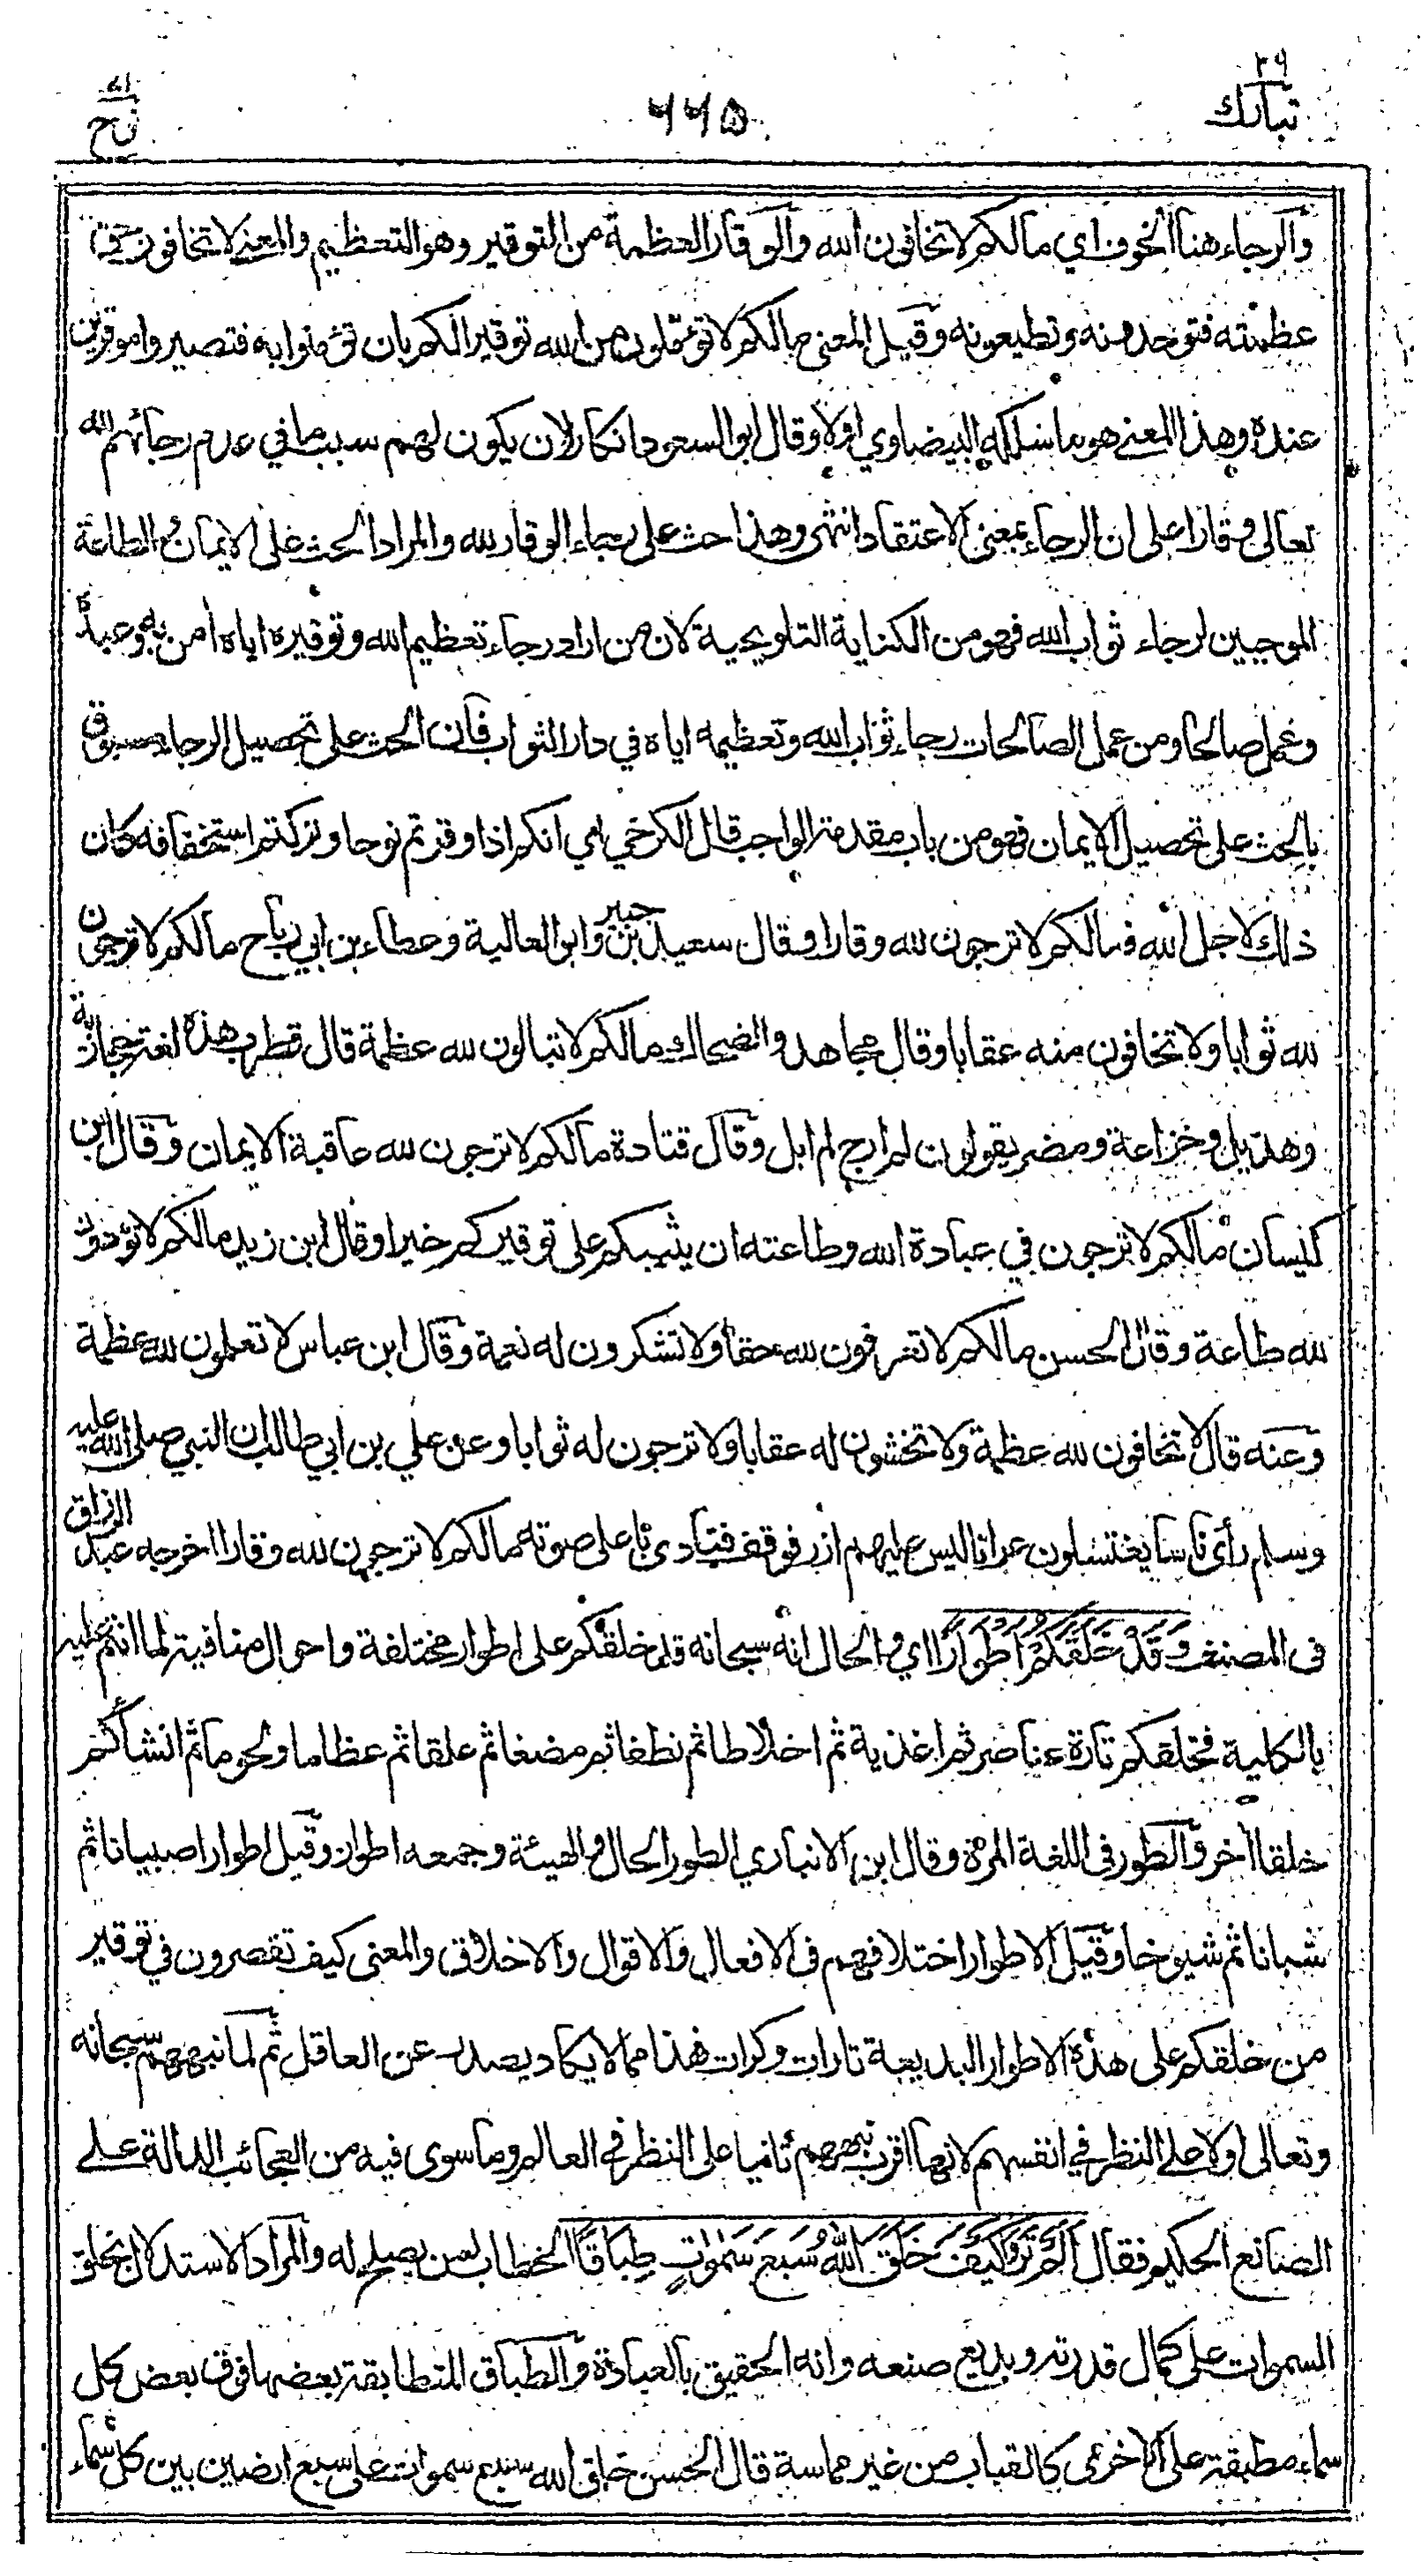 تبارك ٢٩
٦٦٥
نوح ٧١
والرجاء هنا الخوف اي مالكم لا تخافون الله والوقار العظمة من التوقير وهو التعظيم والمعنى لا تخافون حق
عظمته فتوحدونه وتطيعونه وقيل المعنى مالكم لا تؤملون من الله توقيرا لكم بان تؤمنوا به فتصيروا موقرين
عنده وهذا المعنى هو ما سلكه البيضاوي اولا وقال ابو السعود انكار لان يكون لهم سبب ما في عدم رجائهم لله
تعالى وقارا على ان الرجاء بمعنى الاعتقاد انتهى وهذا حث على رجاء الوقار لله والمراد الحث على الايمان والطاعة
الموجبين لرجاء ثواب الله فهو من الكناية التلويحية لان من اراد رجاء تعظيم الله وتوقيره اياه امن به وعبده
وعمل صالحا ومن عمل الصالحات رجاء ثواب الله وتعظيمه اياه في دار الثواب فان الحث على تحصيل الرجاء مسبوق
بالحث على تحصيل الايمان فهو من باب مقدمة الواجب قال الكرخي اي انكم اذا وقرتم نوحا وتركتم استخفافه كان
ذلك لاجل الله فمالكم لا ترجون لله وقارا وقال سعيد بن جبير وابو العالية وعطاء بن ابي رباح مالكم لا ترجون
لله ثوابا ولا تخافون منه عقابا وقال مجاهد والضحاك مالكم لا تبالون لله عظمة قال قطرب هذه لغة حجازية
وهذيل وخزاعة ومضر يقولون لم ارج لم ابل وقال قتادة مالكم لا ترجون لله عاقبة الايمان وقال ابن
كيسان مالكم لا ترجون في عبادة الله وطاعته ان يثيبكم على توقيركم خيرا وقال ابن زيد مالكم لا تؤدون
لله طاعة وقال الحسن مالكم لا تعرفون لله حقا ولا تشكرون له نعمة وقال ابن عباس لا تعلمون لله عظمة
وعنه قال لا تخافون لله عظمة ولا تخشون له عقابا ولا ترجون له ثوابا وعن علي بن ابي طالب ان النبي صلى الله عليه
وسلم رأى ناسا يغتسلون عراة ليس عليهم ازر فوقف فنادى باعلى صوته مالكم لا ترجون لله وقارا اخرجه عبد الرزاق
فى المصنف وَقَدْ خَلَقَكُمْ أَطْوَارًا اي والحال انه سبحانه قد خلقكم على اطوار مختلفة واحوال منافية لما انتم عليه
بالكلية فخلقكم تارة عناصر ثم اغذية ثم اخلاطا ثم نطفا ثم مضغا ثم علقا ثم عظاما ولحوما ثم انشأكم
خلقا اخر والطور فى اللغة المرة وقال ابن الانباري الطور الحال والهيئة وجمعه اطوار وقيل اطوارا صبيانا ثم
شبانا ثم شيوخا وقيل الاطوار اختلافهم فى الافعال والاقوال والاخلاق والمعنى كيف تقصرون في توقير
من خلقكم على هذه الاطوار البديعة تارات وكرات هذا مما لا يكاد يصدر عن العاقل ثم لما نبههم سبحانه
وتعالى اولا على النظر في انفسهم لانها اقرب نبههم ثانيا على النظر في العالم وما سوى فيه من العجائب الدالة على
الصانع الحكيم فقال أَلَمْ تَرَوْا كَيْفَ خَلَقَ اللَّهُ سَبْعَ سَمٰوٰتٍ طِبَاقًا الخطاب لمن يصلح له والمراد الاستدلال بخلق
السموات على كمال قدرته وبديع صنعه وانه الحقيق بالعبادة والطباق المتطابقة بعضها فوق بعض كل
سماء مطبقة على الاخرى كالقباب من غير مماسة قال الحسن خلق الله سبع سموات على سبع ارضين بين كل سماء